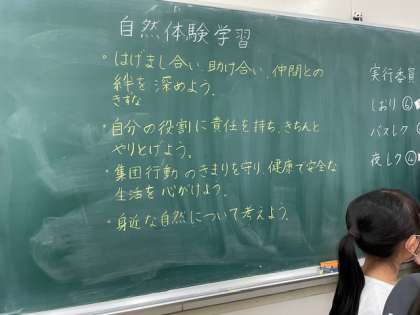 自然体験学習
・はげまし合い、助け合い、仲間との
絆を深めよう。
きずな
・自分の役割に責任を持ち、きちんと
やりとげよう。
・集団行動のきまりを守り、健康で安全な
生活を心がけよう。
・身近な自然について考えよう。
実行委員
しおり⑥
バスレク
夜レク④